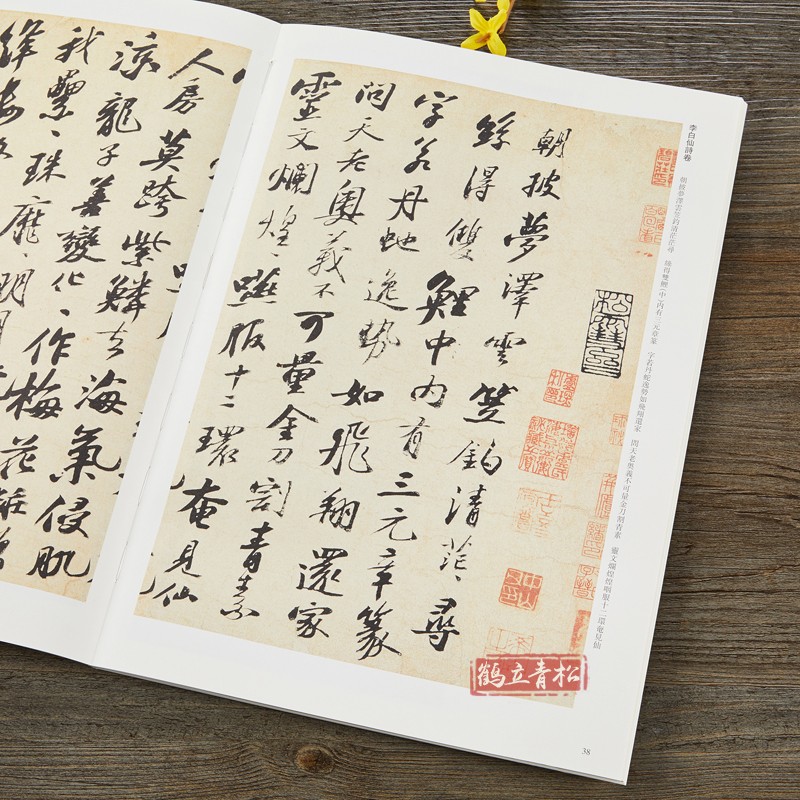 李白仙詩卷
朝披夢澤雲笠釣清茫茫尋 絲得雙鯉(中)内有三元章篆 字若丹蛇逸勢如飛翔還家 問天老奥義不可量金刀割青素 靈文爛煌煌嚥服十二環奄見仙
朝披夢澤雲笠釣清茫〻尋
絲得雙鯉中内有三元章篆
字若丹虵逸勢如飛翔還家
問天老奥義不可量金刀割青素
靈文爛煌〻嚥服十二環奄見仙
人房莫跨紫鱗去海氣侵肌
涼龍子善變化〻作梅花粧贈
我纍〻珠靡〻明月
絳
鹤立青松
38